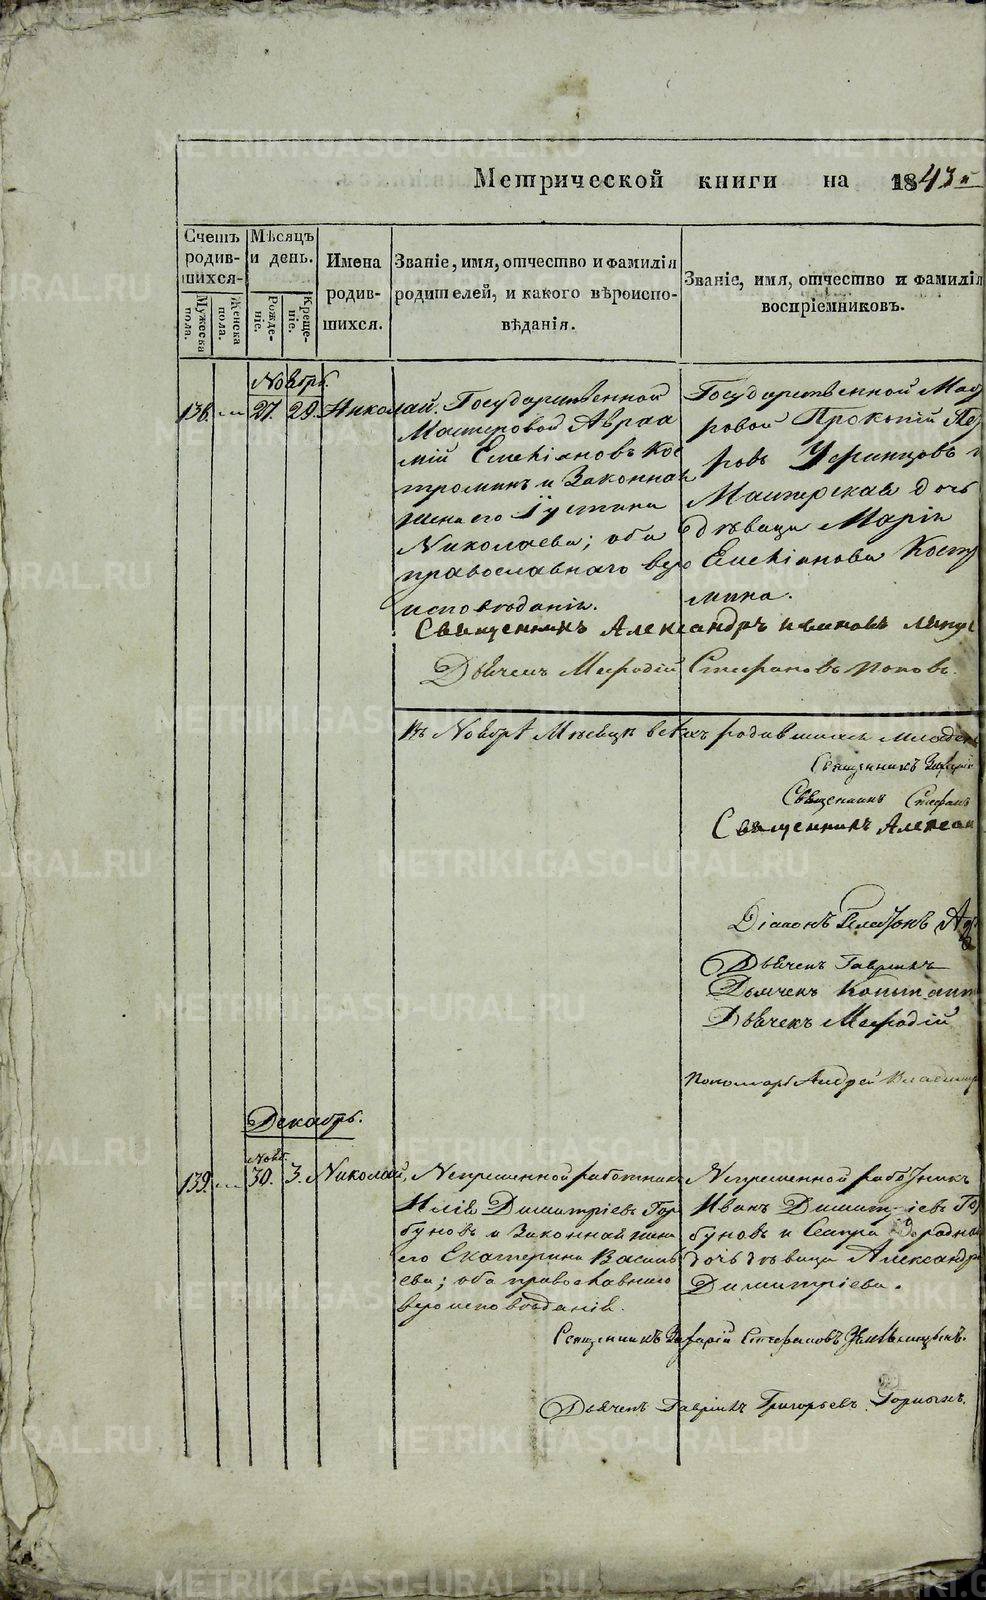 Метрической книги на 1843й
Счетъ родив-шихся.
Мужеска пола.
Женска пола.
Мѣсяцъ и день.
Рожде-ніе.
Креще-ніе.
Имена родив-шихся.
Званіе, имя, отчество и фамилія родителей, и какого вѣроиспо-вѣданія.
Званіе, имя, отчество и фамилія воспріемниковъ.
Ноябрь.
138. — 27. 29. Николай.
Государственной
Мастеровой Авраа
мій Емеліановъ Кос
троминъ и Законная
жена его Іустина
Николаева; оба
православнаго веро
исповѣданія.
Государственной Мас
ровой Прокопій Пе
ровъ
Мастерская дочь
дѣвица Марія
Емеліанова Костр
мина.
Священникъ Александръ Ивановъ
Дьячекъ Мефодій Стефановъ Поповъ.
Въ Ноябрѣ Мѣсяцѣ всѣхъ родившихся младен
Священникъ Захарій
Священникъ Стефанъ
Священникъ Алексан
Діаконъ
Дьячекъ Гавріилъ
Дьячекъ Констант
Дьячекъ Мефодій
Пономарь Андрей Владимир
Декабрь.
Нояб.
139. — 30. 3. Николай.
Непременной работникъ
Илія Димитріевъ Гор
буновъ и Законная жена
его Екатерина Василь
ева; оба православнаго
вероисповѣданія.
Непременной работникъ
Иванъ Димитріевъ Го
буновъ и Сестра родная
дочь дѣвица Александра
Димитріева.
Священникъ Захарій Стефановъ Земляницынъ.
Дьячекъ Гавріилъ Григорьевъ Горныхъ.
METRIKI.GASO-URAL.RU